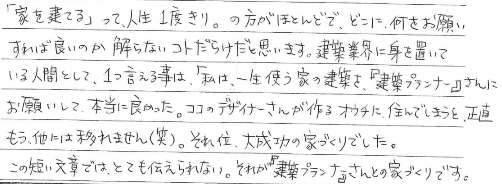 「家を建てる」って、人生1度きり。の方がほとんどで、どこに、何をお願い
すれば良いのか 解らないコトだらけだと思います。建築業界に身を置いて
いる人間として、1つ言える事は、「私は、一生使う家の建築を、『建築プランナー』さんに
お願いして、本当に良かった。ココのデザイナーさんが作るオウチに、住んでしまうと、正直
もう、他には移れません(笑)。それ位、大成功の家づくりでした。
この短い文章では、とても伝えられない。それが『建築プランナー』さんとの家づくりです。